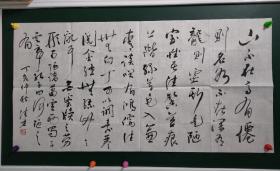 山不在高有僊
則名水不在深有
龍則靈斯是陋
室惟吾德馨苔痕
上階綠草色入簾
青談笑有鴻儒往
來無白丁可以調素琴
閱金經無絲竹之
亂耳無案牘之勞
形南陽諸葛廬西蜀子
雲亭孔子曰何陋之
有 丁亥仲秋